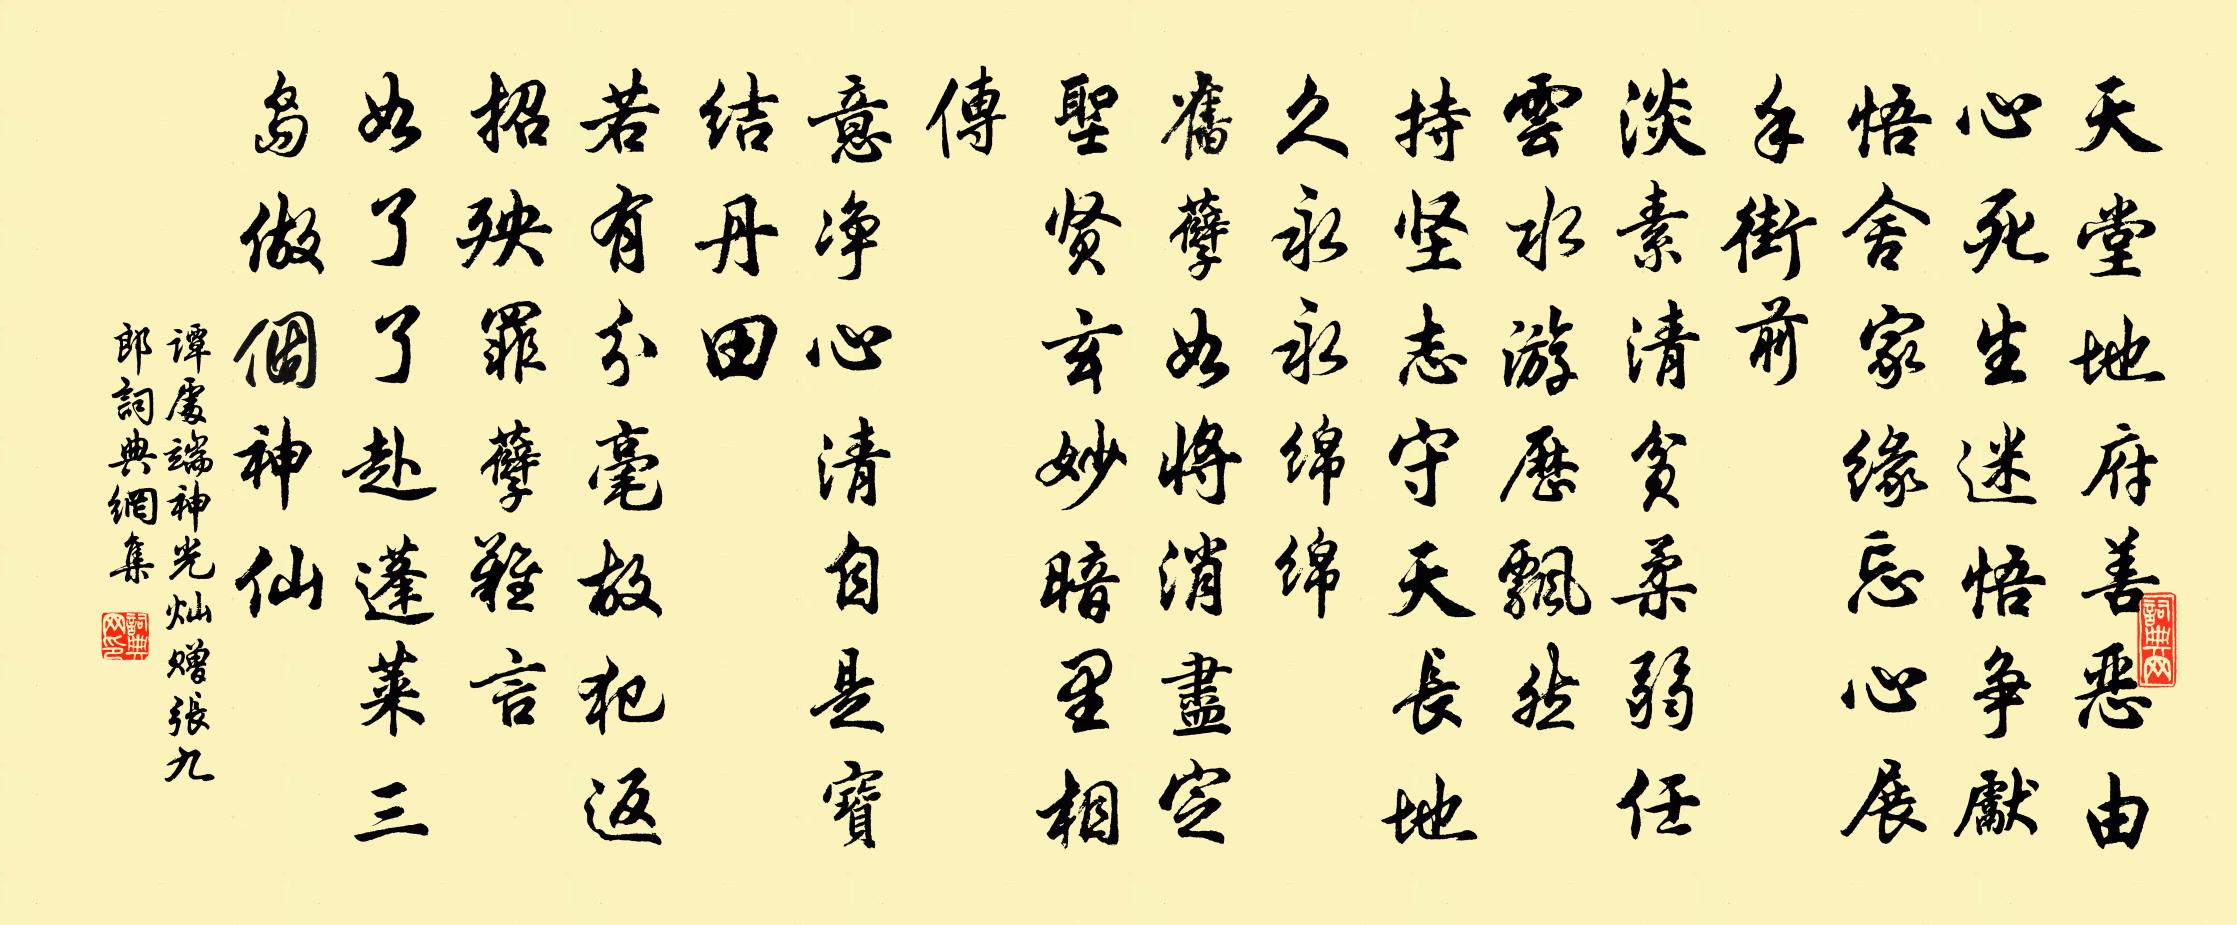 天堂地府善恶由
心死生迷悟争獻
悟舍家缘忘心展
手街前
淡素清貧柔弱任
雲水游歷飄然
持坚志守天長地
久永永绵绵
舊孽如将消盡定
聖贤玄妙暗里相
傳
意净心清自是寶
结丹田
若有分毫故犯返
招殃罪孽難言
如了了赴蓬莱三
島做個神仙
谭處端神光灿赠張九
郎詞典網集
詞典网
詞典网印